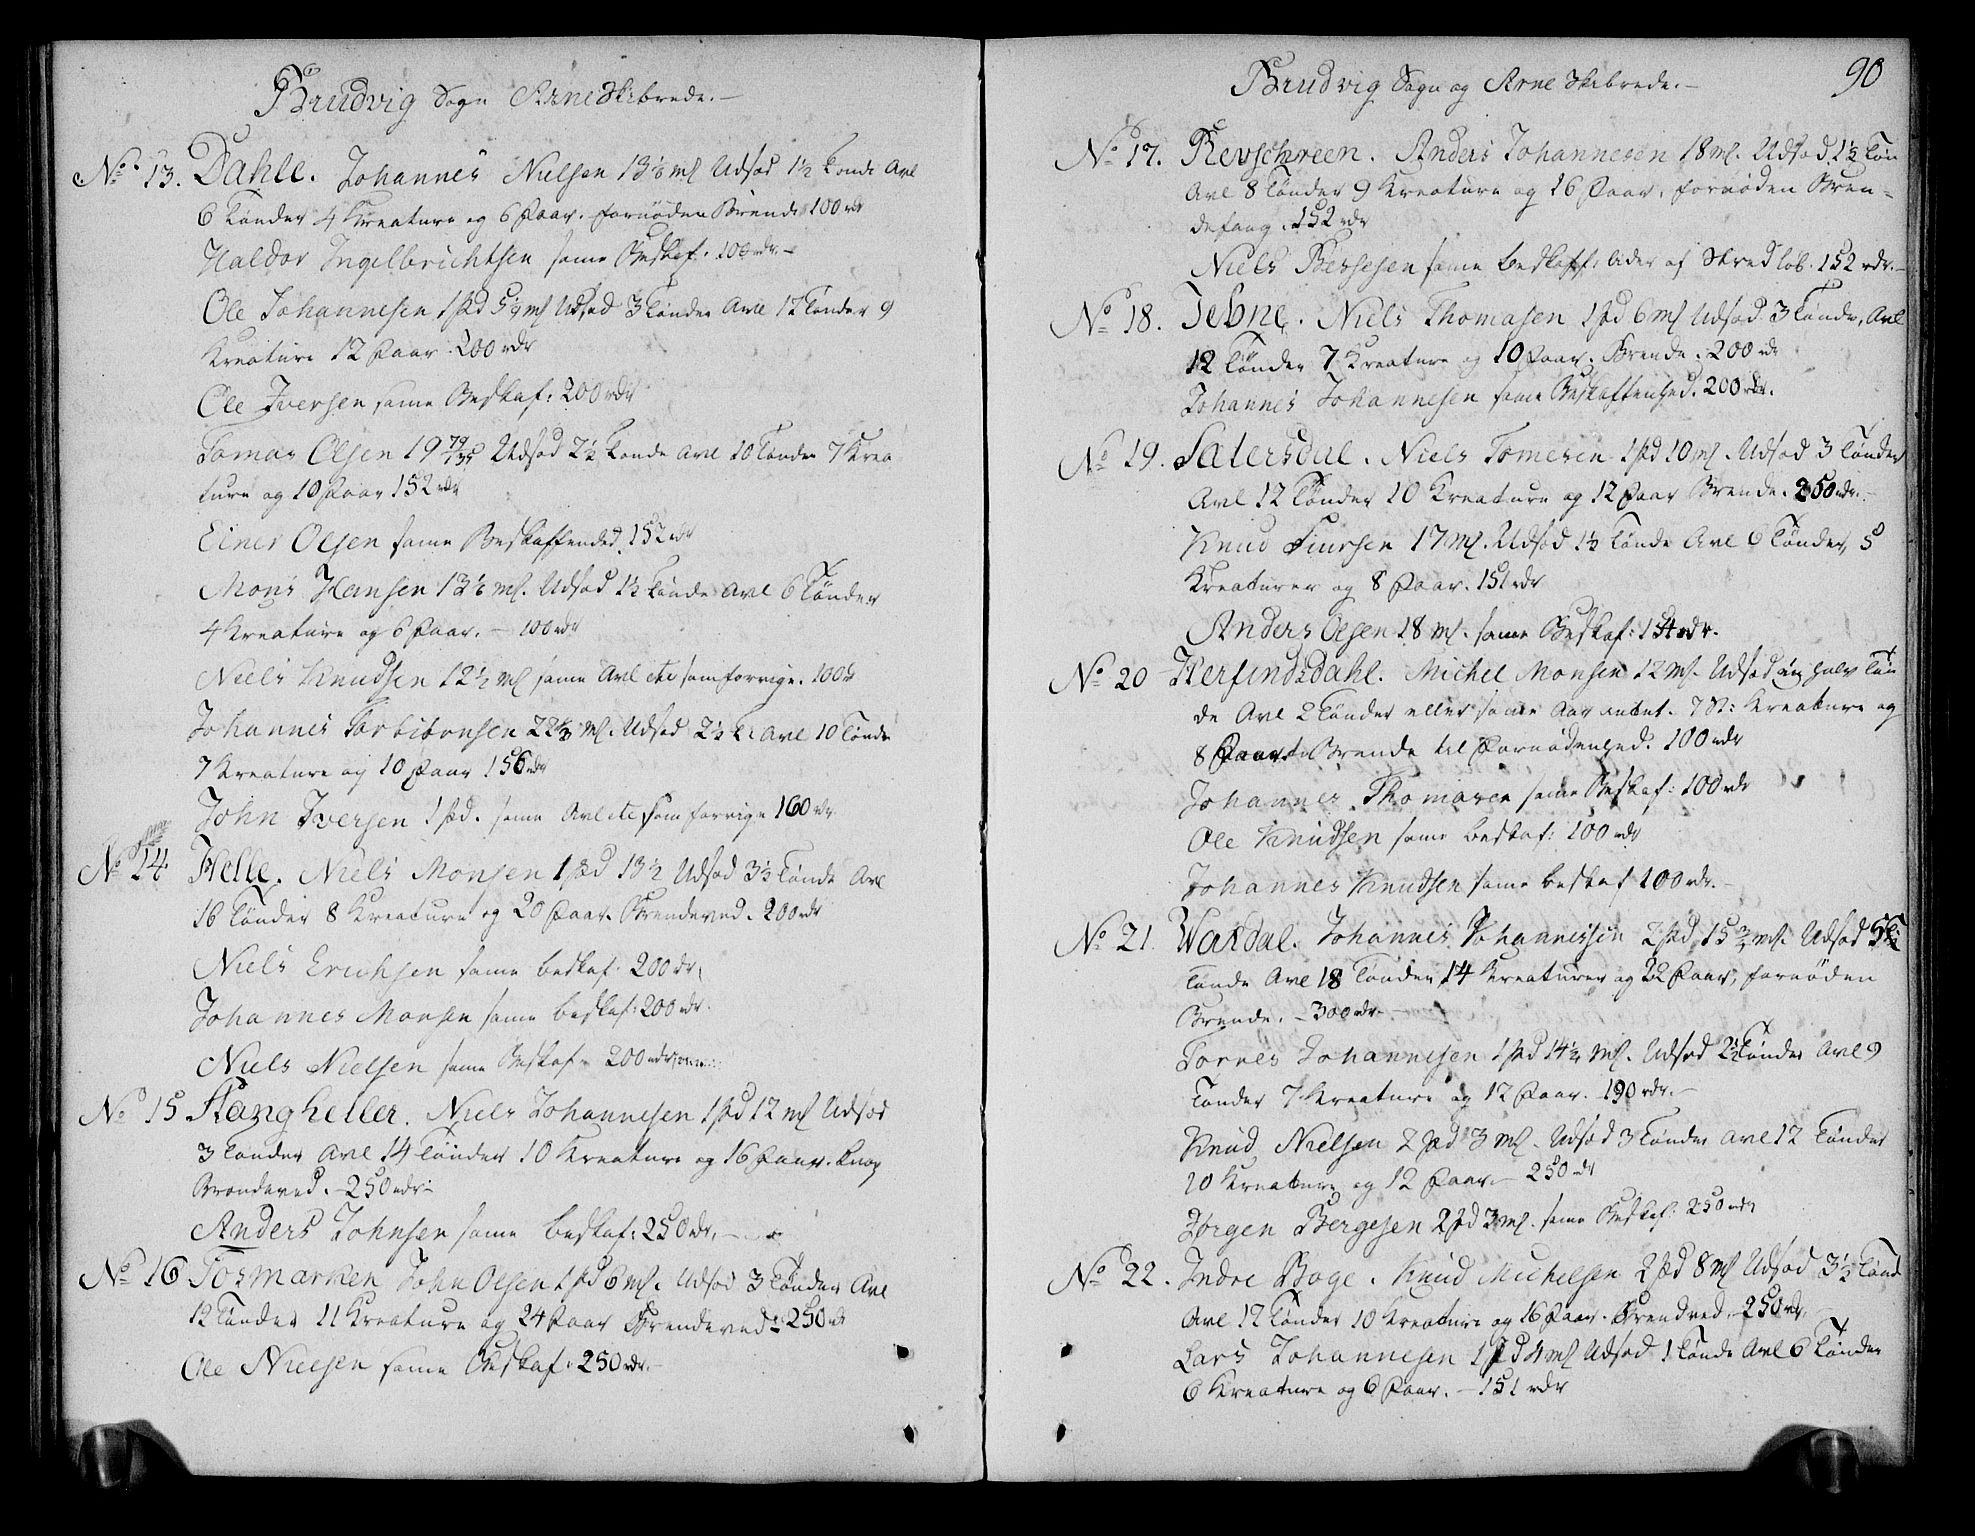 Brudvig Sogn Arne Skibrede. –
No 13. Dahle. Johannes Nielsen 13½ ml Udsæd 1½ Tønde Avl
6 Tønder 4 Kreature og 6 Faar. fornöden Brende 100 rdr
Haldor Ingelbrichtsen same Beskaf: 100 rdr. –
Ole Johannesen 1 pd 5¼ ml Udsæd 3 Tønder Avl 12 Tønder 9
Kreature 12 Faar 200 rdr
Ole Iversen same Beskaf: 200 rdr
Tomas Olsen 19 79/135 Udsæd 2½ Tønde Avl 10 Tønder 7 Krea
ture og 10 Faar 152 rdr
Einer Olsen same Beskaffenhed 152 rdr
Mons Hansen 13½ ml. Udsæd 1½ Tønde Avl 6 Tønder
4 Kreature og 6 Faar. – 100 rdr
Niels Knudsen 12½ ml same Avl etc som forrige. 100 r
Johannes Torbiörnsen 22⅔ ml. Udsæd 2½ T: Avl 10 Tønde
7 Kreature og 10 Faar 156 rdr
John Iversen 1 pd. same Avl etc som forrige 160 rdr
No 14. Helle. Niels Monsen 1 pd 13½ Udsæd 3½ Tønde Avl
16 Tønder 8 Kreature og 20 Faar. Brendeved. 200 rdr
Niels Erichsen same beskaf: 200 dr,
Johannes Monsen same beskaf: 200 rdr.
Niels Nielsen same Beskaf: 200 rdr
No 15 Stangheller. Niels Johannesen 1 pd 12 ml Udsæd
3 Tønder Avl 14 Tønder 10 Kreature og 16 Faar. knap
Brendeved. – 250 rdr –
Anders Johnsen same beskaf: 250 dr. –
No 16 Tosmarken John Olsen 1 pd 6 ml. Udsæd 3 Tønder Avl
12 Tønder 11 Kreature og 24 Faar Brendeved: 250 rdr
Ole Nielsen same Beskaf: 250 rdr. –
90
Brudvig Sogn og Arne Skibrede. –
No 17. Revschreen. Anders Johannesen 18 ml. Udsæd 1½ Tøn
Avl 8 Tønder 9 Kreature og 16 Faar, fornöden Bren=
defang. 152 rdr
Niels Bessesen same beskaff: lider af Skredlöb. 152 rdr. –
No 18. Tebne. Niels Thomasen 1 pd 6 ml Udsæd 3 Tønde, Avl
12 Tønder 7 Kreature og 10 Faar. Brende. 200 rdr
Johannes Johannesen same Beskaffenhed. 200 rdr.
No 19. Satersdal. Niels Tomesen 1 pd 10 ml. Udsæd 3 Tønder
Avl 12 Tønder 10 Kreature og 12 Faar Brende. 250 rdr. –
Knud Siursen 17 ml. Udsæd 1½ Tønde Avl 6 Tønder, 5
Kreaturer og 8 Faar. 151 rdr
Anders Olsen 18 ml. same Beskaf: 154 rdr.
No 20 Herfindsdahl. Michel Monsen 12 ml. Udsæd en halv Tøn
de Avl 2 Tønder eller same Aar intet. 7 St: Kreature og
8 Faar Brende til Fornödenhed. 100 rdr
Johannes Thomasen same Beskaf: 100 rdr
Ole Knudsen same beskaf: 100 rdr
Johannes Knudsen same beskaf 100 rdr. –
No 21. Waxdal. Johannes Johannessen 2 pd 15¾ ml. Udsæd
Tønde Avl 18 Tønder, 14 Kreaturer og 22 Faar, fornöden
Brende. – 300 rdr –
Tornes Johannesen 1 pd 14½ ml. Udsæd 2½ Tønder Avl 9
Tønder 7 Kreature og 12 Faar. 190 rdr. –
Knud Nielsen 2 pd 3 ml. Udsæd 3 Tønder Avl 12 Tønder
10 Kreature og 12 Faar – 250 rdr
Jørgen Bergesen 2 pd 3 ml. same Beskaf: 250 rdr
No 22. Indre Boge. Knud Michelsen 2 pd 8 ml Udsæd 3½ Tønd
Avl 12 Tønder 10 Kreature og 16 Faar. Brendved. 250 rdr
Lars Johannesen 1 pd 4 ml Udsæd 1 Tønde Avl 6 Tønder
6 Kreature og 6 Faar. – 151 rdr